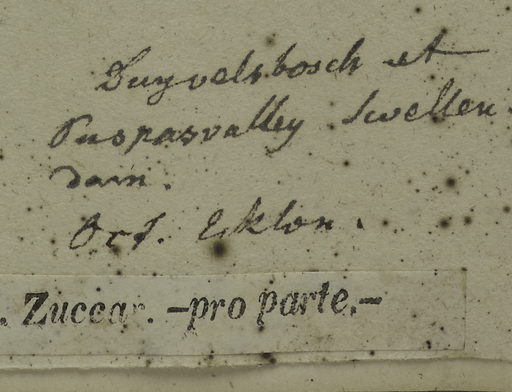 Duyvelsbosch et
Puspasvalley Swellen
dam.
Oct. Eklon.
. Zuccar. —pro parte.—